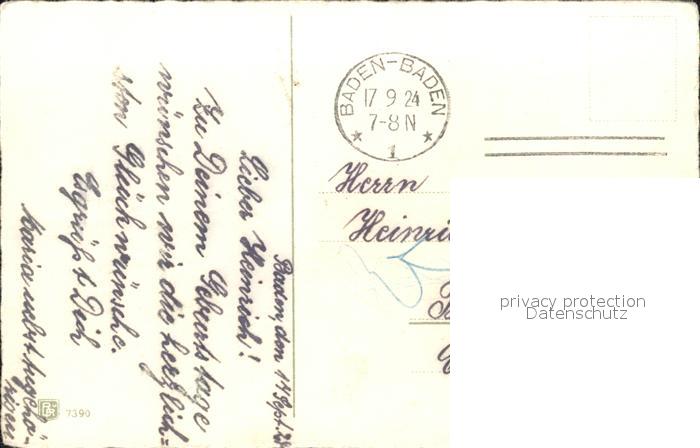 Baden, den 17 Sept. 24
Lieber Heinrich!
Zu Deinem Geburtstage
wünschen wir die herzlich=
sten Glückwünsche.
Es grüßt Dich
Maria nebst
7390
BADEN-BADEN
17 9 24
7-8 N
* 1 *
Herrn
Heinri
privacy protection
Datenschutz